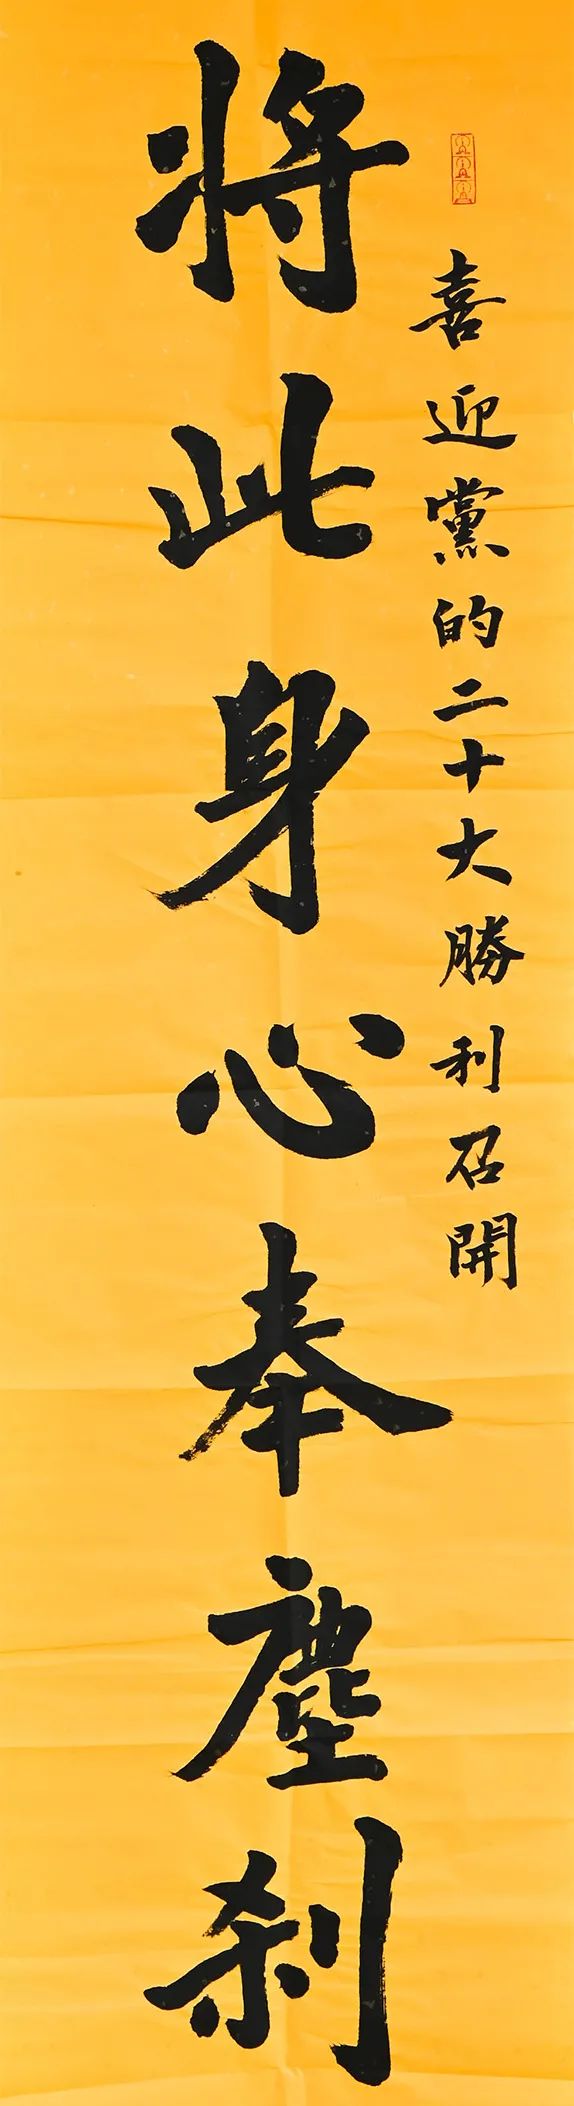 喜迎黨的二十大勝利召開
将此身心奉塵刹